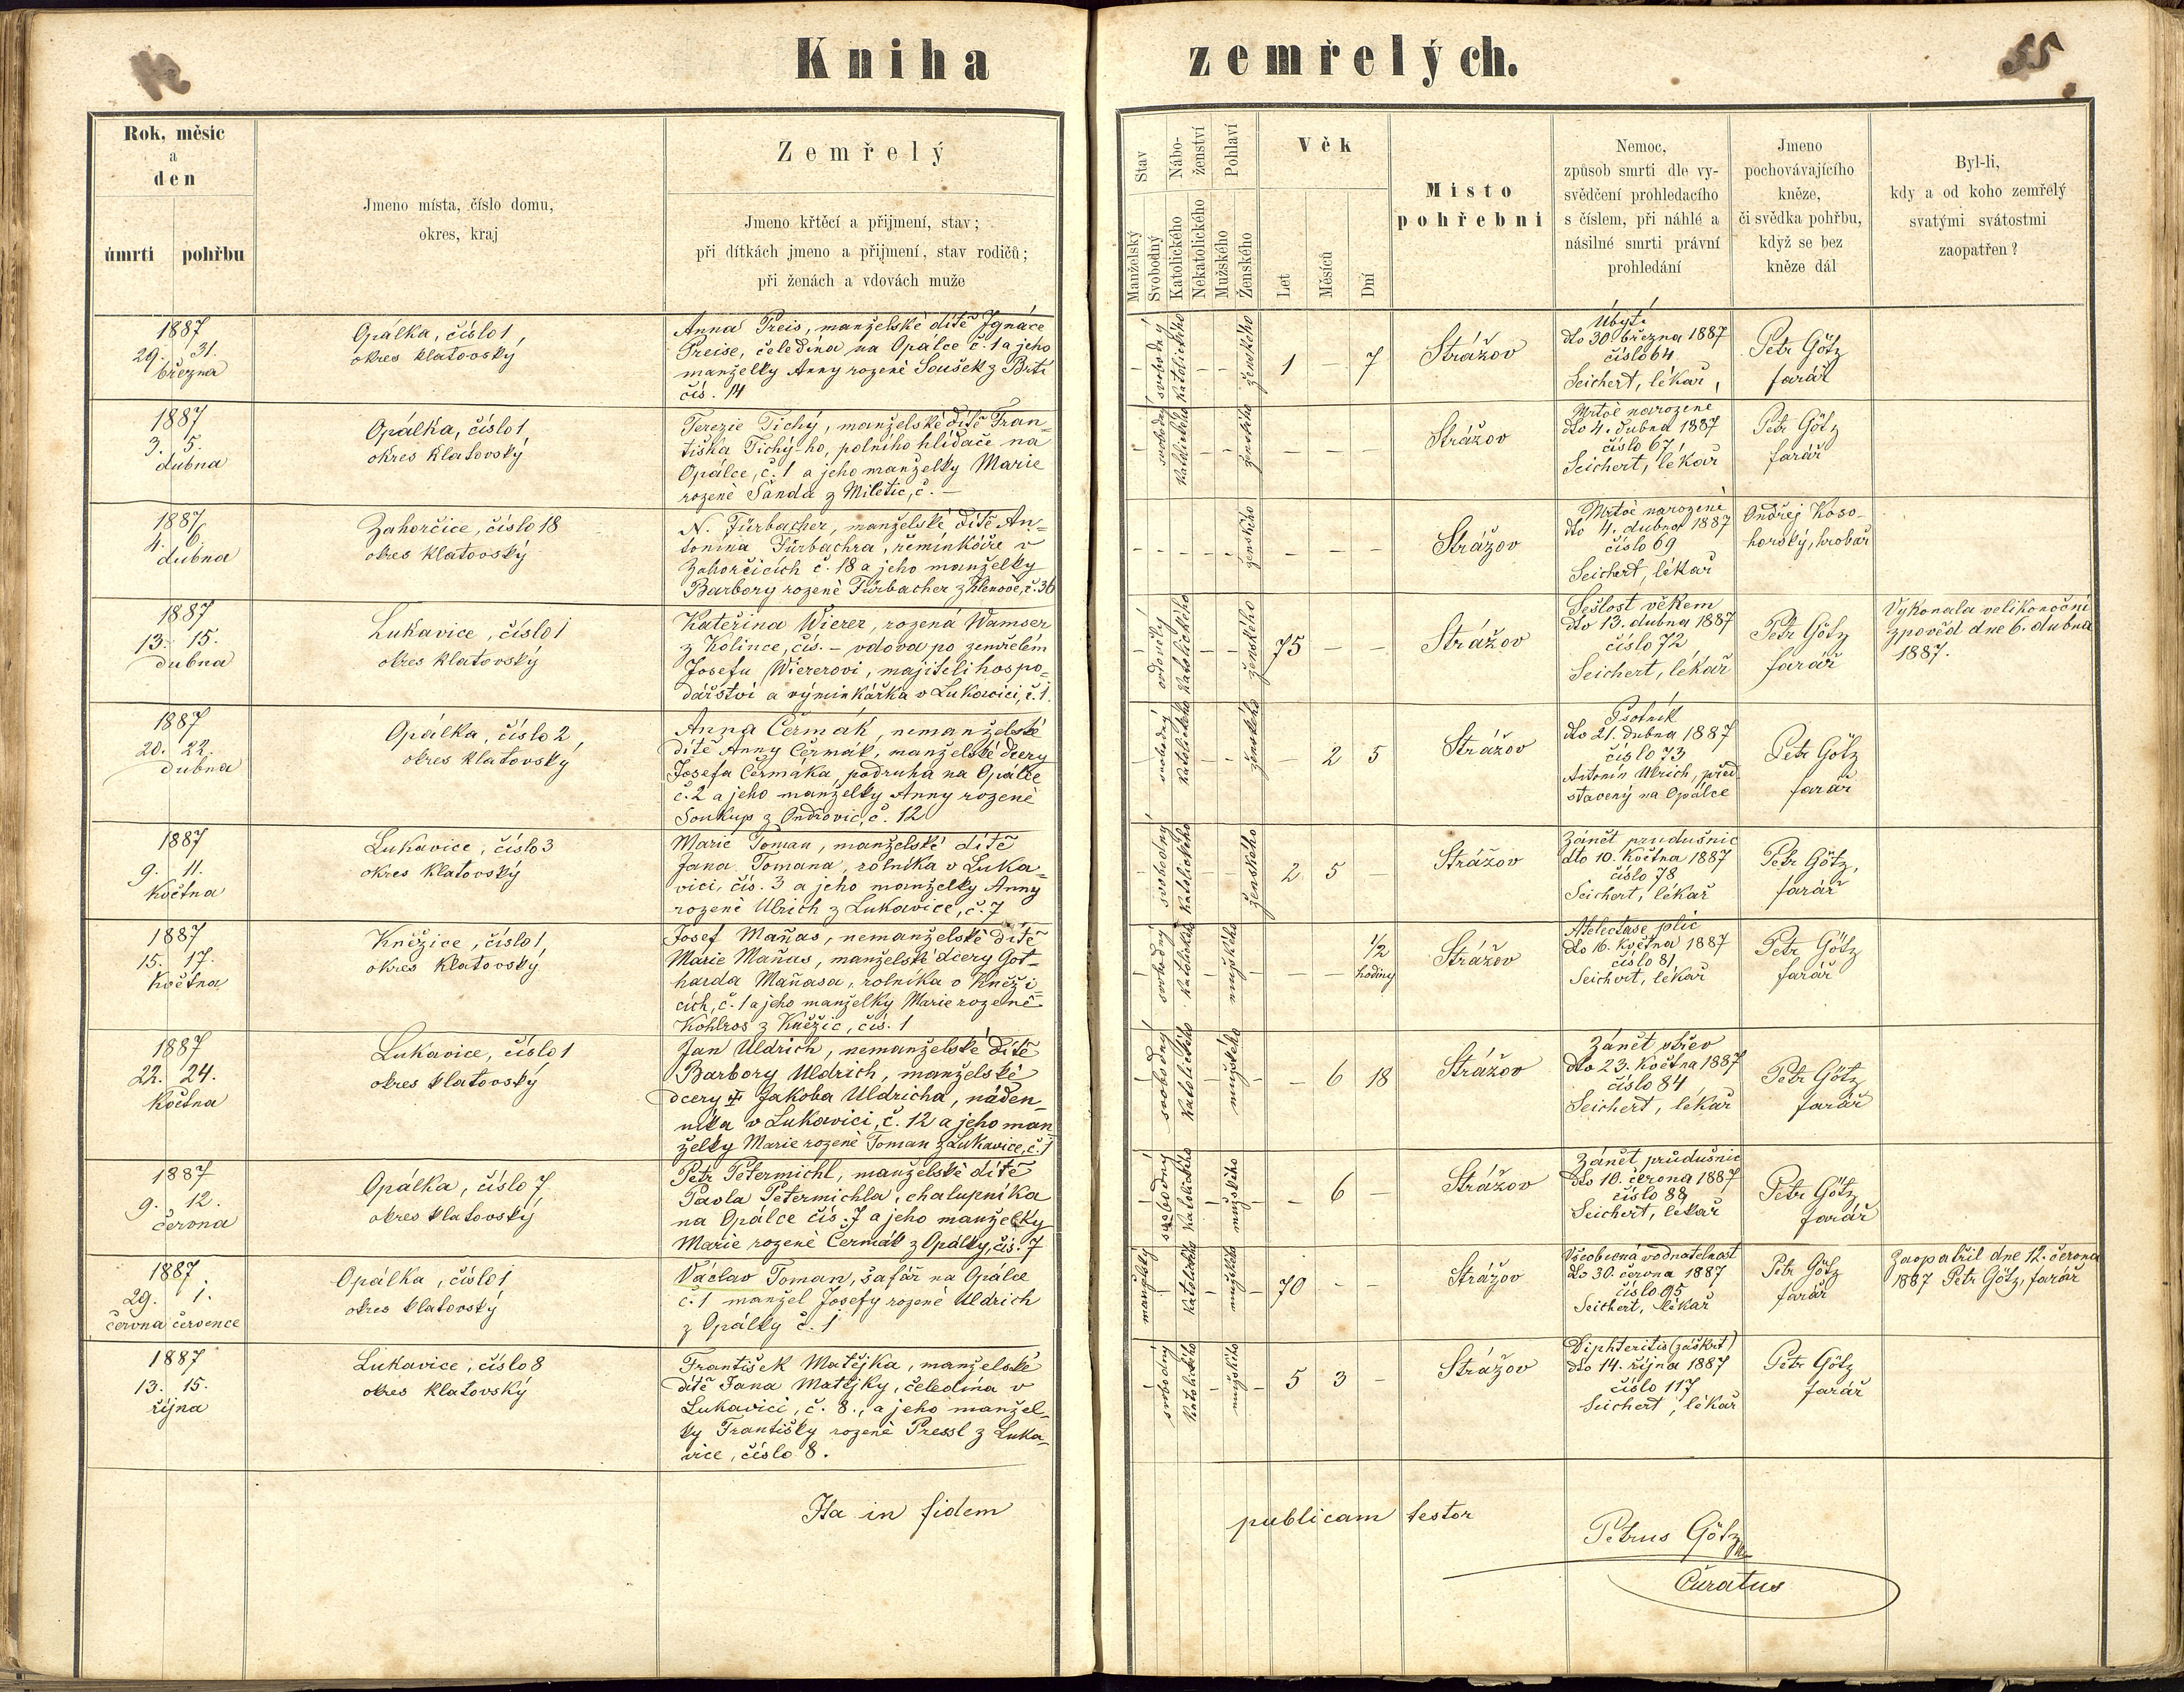 Kniha zemřelých.
55
Rok, měsíc
a
den
úmrtí pohřbu
Jmeno místa, číslo domu,
okres, kraj
Zemřelý
Jmeno křtěcí a přijmení, stav;
při dítkách jmeno a přijmení, stav rodičů;
při ženách a vdovách muže
Stav
Manželský
Svobodný
Nábo-
ženství
Katolického
Nekatolického
Pohlaví
Mužského
Ženského
Věk
Let
Měsíců
Dní
Místo
pohřební
Nemoc,
způsob smrti dle vy-
svědčení prohledacího
s číslem, při náhlé a
násilné smrti právní
prohledání
Jmeno
pochovávajícího
kněze,
či svědka pohřbu,
když se bez
kněze dál
Byl-li,
kdy a od koho zemřelý
svatými svátostmi
zaopatřen?
1887
29. 31.
března
Opálka, číslo 1,
okres klatovský
Anna Preis, manželské dítě Ignáce
Preise, čeledína na Opálce č. 1 a jeho
manželky Anny rozené Soušek z Brti
čís. 14
– svobodný katolického – – ženského
1 – 7
Strážov
Úbytí
dto 30 března 1887
číslo 64
Seichert, lékař,
Petr Götz
farář
1887
3. 5.
dubna
Opálka, číslo 1,
okres klatovský
Terezie Tichý, manželské dítě Fran-
tiška Tichý-ho, polního hlídače na
Opálce, č. 1 a jeho manželky Marie
rozené Šanda z Miletic, č. –
– svobodný katolického – – ženského
– – –
Strážov
Mrtvě narozené
dto 4. dubna 1887
číslo 67
Seichert, lékař
Petr Götz
farář
1887
4. 6.
dubna
Zahorčice, číslo 18
okres klatovský
N. Fürbacher, manželské dítě An-
tonína Fürbachra, řeminkáře v
Zahorčicích č. 18 a jeho manželky
Barbory rozené Fürbacher z Klenové, č. 36
– – – – – ženského
– – –
Strážov
Mrtvě narozené
dto 4. dubna 1887
číslo 69
Seichert, lékař
Ondřej Koso-
horský, hrobař
1887
13. 15.
dubna
Lukavice, číslo 1
okres klatovský
Kateřina Wierer, rozená Wamser
z Kolince, čís. – vdova po zemřelém
Josefu Wiererovi, majiteli hospo-
dářství a výminkářka v Lukavici, č. 1.
– ovdovělý katolického – – ženského
75 – –
Strážov
Sešlost věkem
dto 13. dubna 1887
číslo 72
Seichert, lékař
Petr Götz
farář
Vykonala velikonoční
zpověd dne 6. dubna
1887.
1887
20. 22.
dubna
Opálka, číslo 2,
okres klatovský
Anna Čermák, nemanželské
dítě Anny Čermák, manželské dcery
Josefa Čermáka, podruha na Opálce
č. 2 a jeho manželky Anny rozené
Soukup z Ondřovic, č. 12
– svobodný katolického – – ženského
– 2 5
Strážov
Psotník
dto 21. dubna 1887
číslo 73
Antonín Ulrich, před-
stavený na Opálce
Petr Götz
farář
1887
9. 11.
května
Lukavice, číslo 3
okres klatovský
Marie Toman, manželské dítě
Jana Tomana, rolníka v Luka-
vici, čís. 3 a jeho manželky Anny
rozené Ulrich z Lukavice, č. 7
– svobodný katolického – – ženského
2 5 –
Strážov
Zánět průdušnic
dto 10. května 1887
číslo 78
Seichert, lékař
Petr Götz,
farář
1887
15. 17.
května
Kněžice, číslo 1,
okres klatovský
Josef Maňas, nemanželské dítě
Marie Maňas, manželské dcery Got-
harda Maňasa, rolníka v Kněži-
cích, č. 1 a jeho manželky Marie rozené
Kohlros z Kněžic, čís. 1
– svobodný katolického – mužského –
– – 1/2
hodiny
Strážov
Atelectase plic
dto 16. května 1887
číslo 81
Seichert, lékař
Petr Götz
farář
1887
22. 24.
května
Lukavice, číslo 1
okres klatovský
Jan Uldrich, nemanželské dítě
Barbory Uldrich, manželské
dcery Jakoba Uldricha, náden-
níka v Lukavici, č. 12 a jeho man
želky Marie rozené Toman z Lukavice, č. 1
– svobodný katolického – mužského –
– 6 18
Strážov
Zánět střev
dto 23. května 1887
číslo 84
Seichert, lékař
Petr Götz
farář
1887
9. 12.
června
Opálka, číslo 7,
okres klatovský
Petr Petermichl, manželské dítě
Pavla Petermichla, chalupníka
na Opálce čís. 7 a jeho manželky
Marie rozené Čermák z Opálky, čís. 7
– svobodný katolického – mužského –
– 6 –
Strážov
Zánět průdušnic
dto 10. června 1887
číslo 88
Seichert, lékař
Petr Götz
farář
1887
29. 1.
června července
Opálka, číslo 1
okres klatovský
Václav Toman, šafář na Opálce
č. 1 manžel Josefy rozené Uldrich
z Opálky č. 1
manželský – katolického – mužského –
70 – –
Strážov
Všeobecná vodnatelnost
dto 30. června 1887
číslo 95
Seichert, lékař
Petr Götz
farář
Zaopatřil dne 12. června
1887 Petr Götz, farář
1887
13. 15.
října
Lukavice, číslo 8
okres klatovský
František Matějka, manželské
dítě Jana Matějky, čeledína v
Lukavici, č. 8., a jeho manžel-
ky Františky rozené Pressl z Luka-
vice, číslo 8.
– svobodný katolického – mužského –
5 3 –
Strážov
Diphteritis (záškrt)
dto 14. října 1887
číslo 117
Seichert, lékař
Petr Götz
farář
Ita in fidem publicam testor
Petrus Götz
Curatus